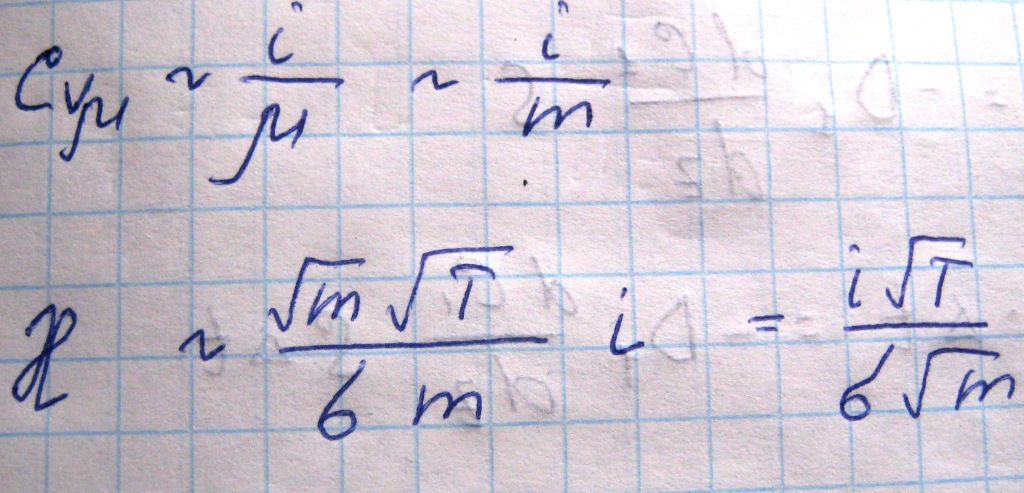 C_{Vμ} ~ \frac{i}{μ} ~ \frac{i}{m}
ϰ ~ \frac{\sqrt{m} \sqrt{T}}{σ m} i = \frac{i \sqrt{T}}{σ \sqrt{m}}